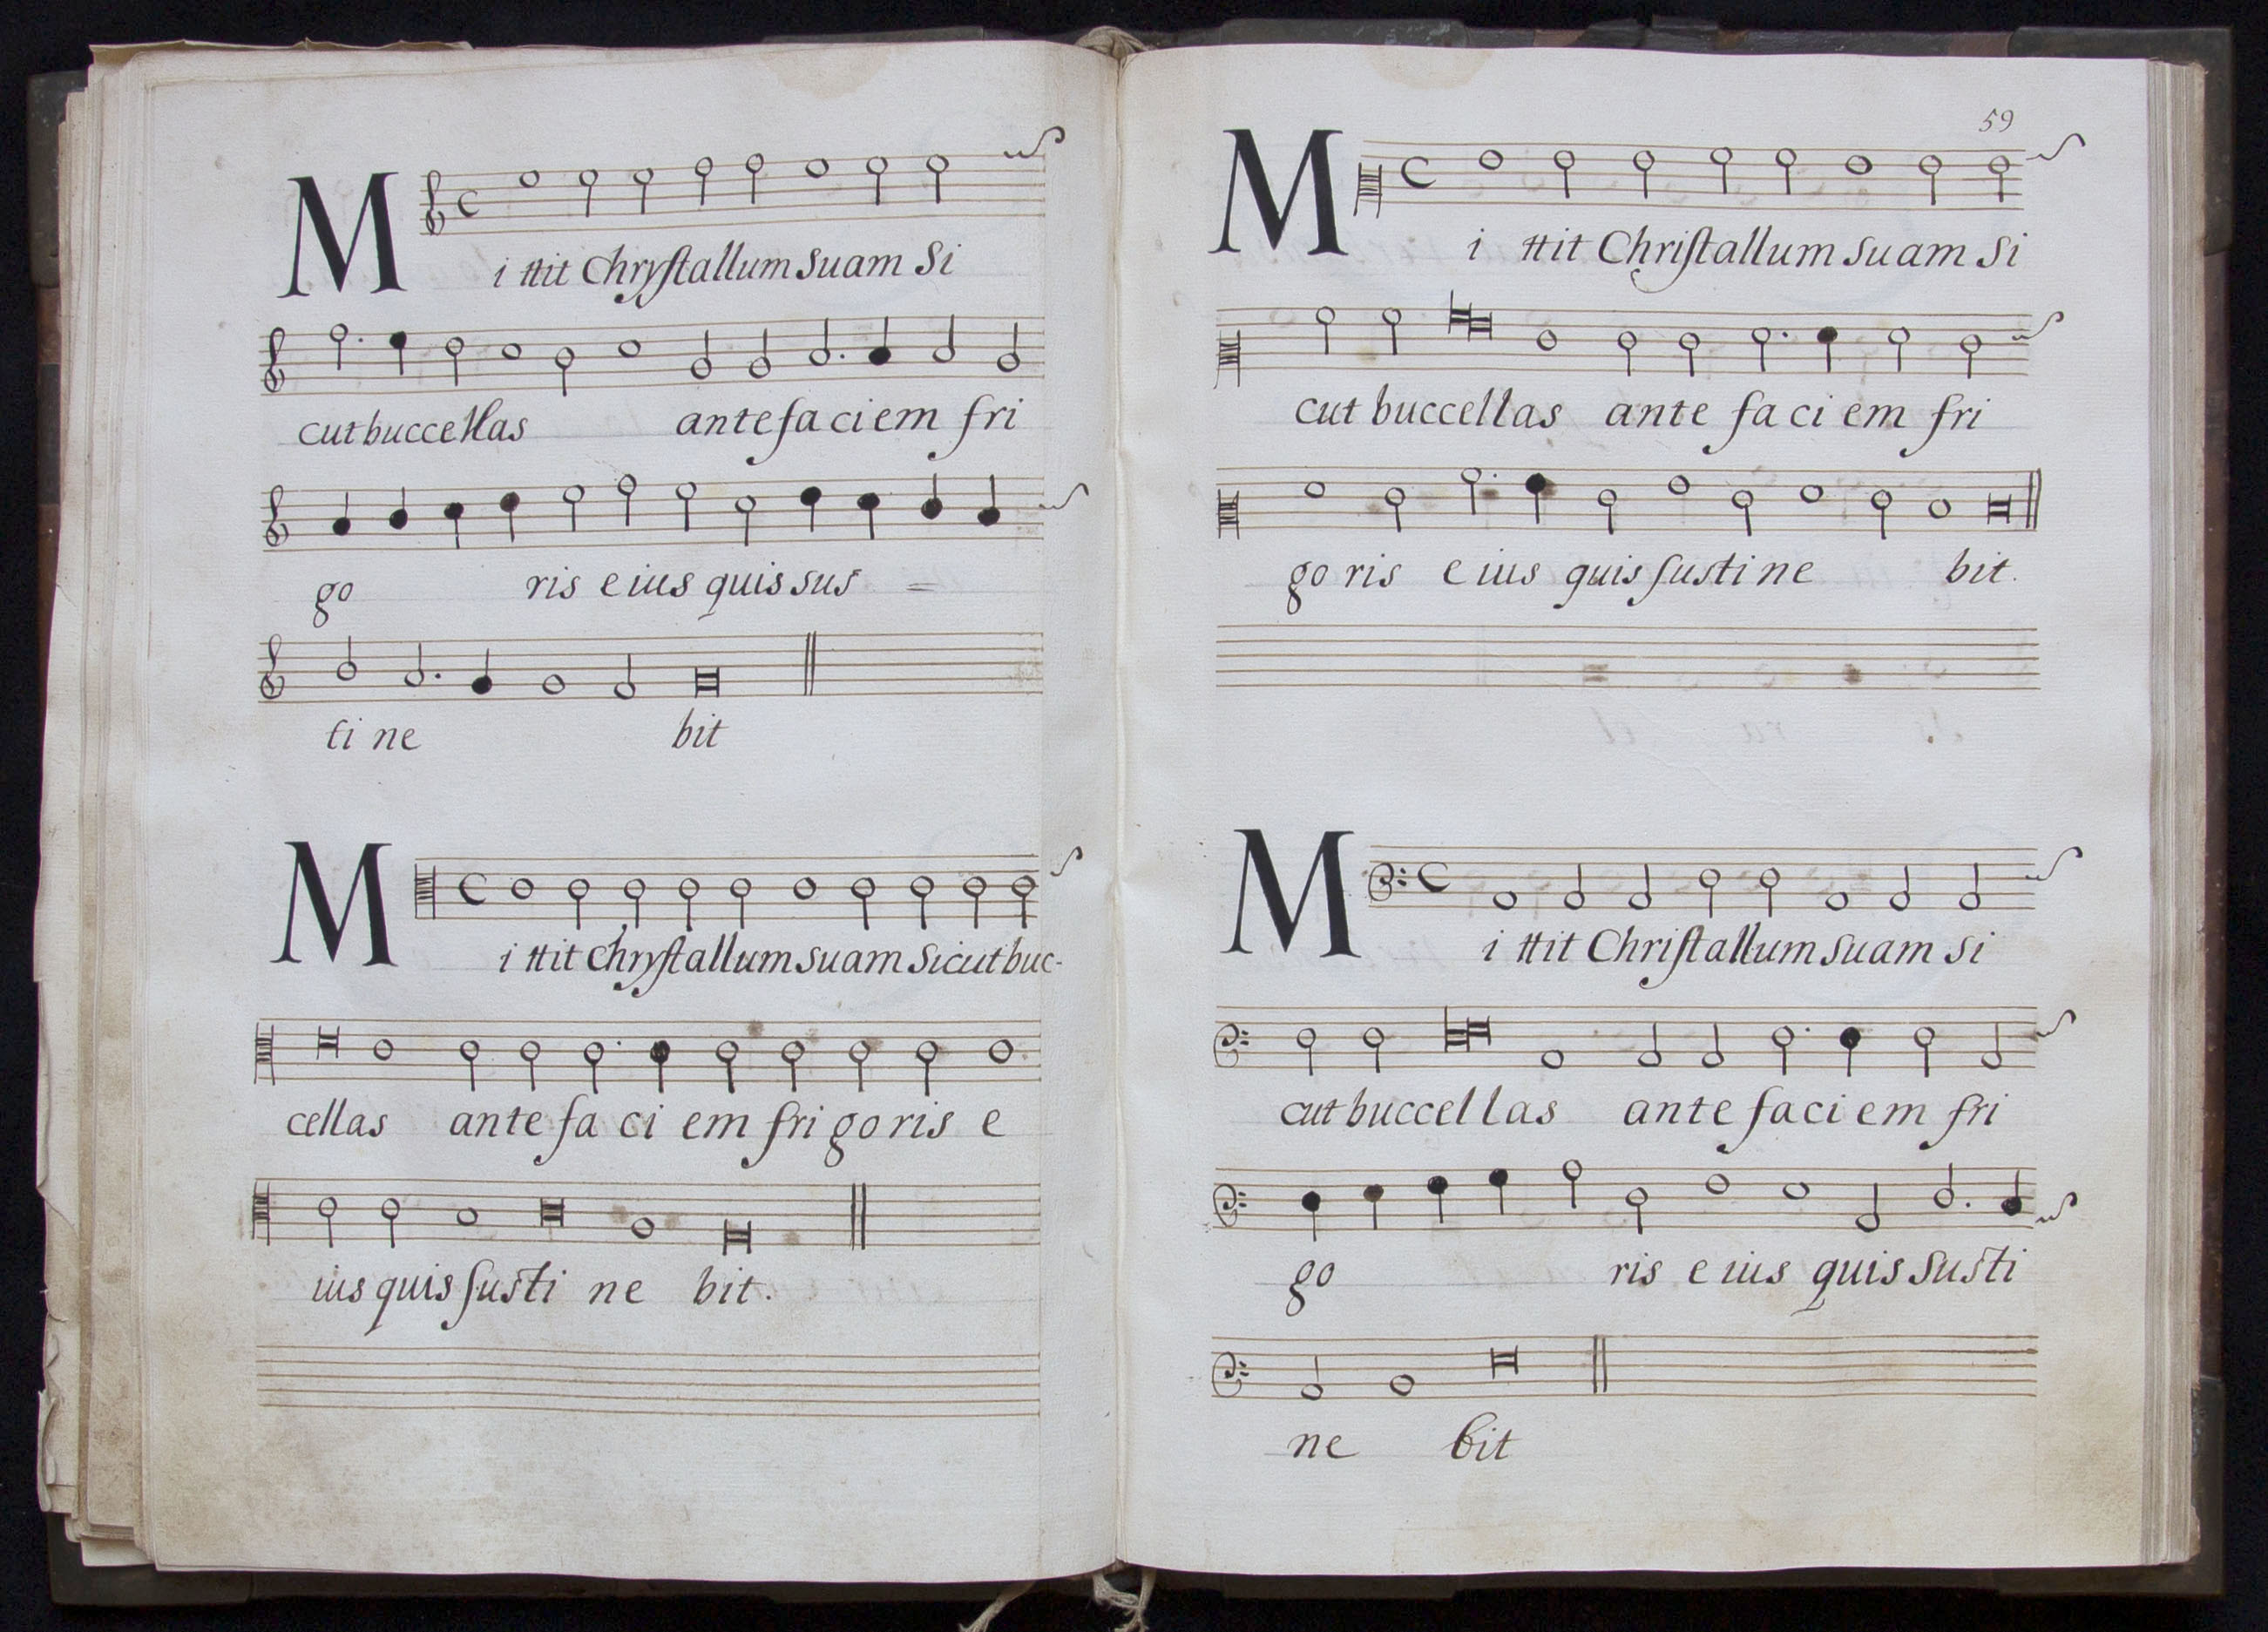 M i ttit Chrystallum suam Si
cut buccellas ante faciem fri
go ris eius quis sus =
ti ne bit
M i ttit Chrystallum suam Sicut buc-
cellas ante fa ci em fri goris e
ius quis susti ne bit.
59
M i ttit Christallum suam Si
cut buccellas ante fa ci em fri
go ris e ius quis susti ne bit.
M i ttit Christallum suam Si
cut buccellas ante faciem fri
go ris e ius quis Susti
ne bit